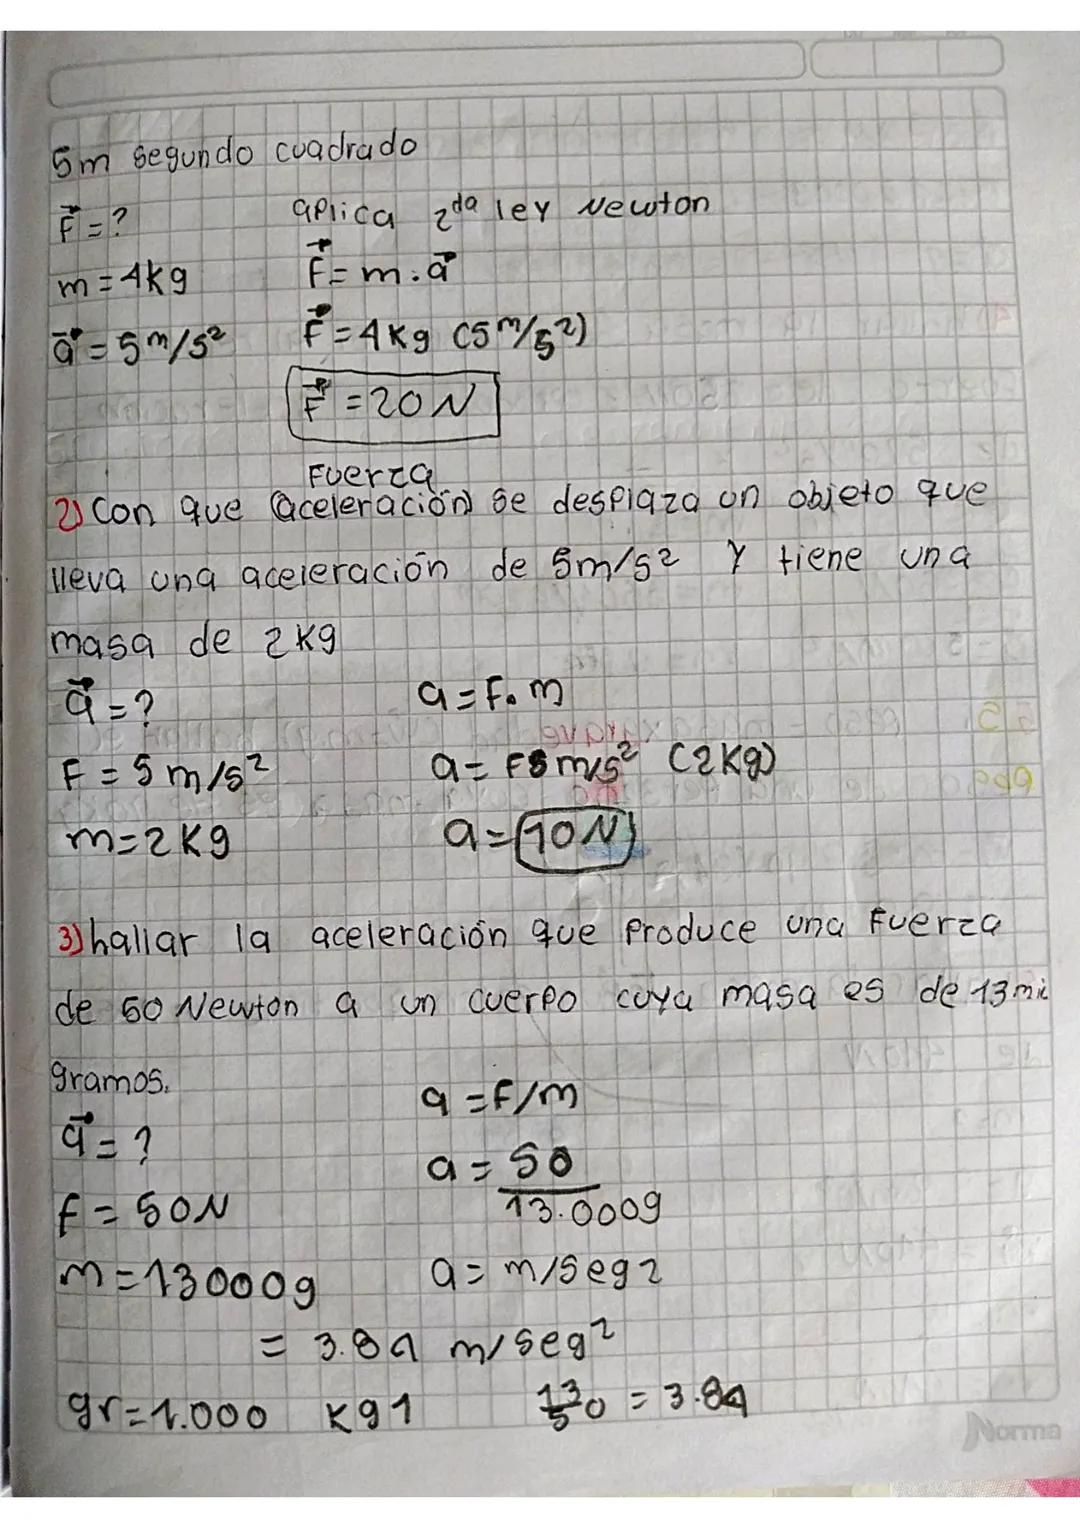 5m segundo cuadrado
F=? aplica 2da ley Newton
m=4kg F=m.a
a=5m/s² F=4kg (5m/s²)
F=20N
Fuerza
2) Con que (aceleración) se desplaza un objeto que
lleva una aceleración de 5m/s² y tiene una
masa de 2kg
a=? a=F.m
F=5m/s² a=F5m/s² (2kg)
m=2kg a=10N
3) hallar la aceleración que produce una fuerza
de 50 Newton a un cuerpo cuya masa es de 13 mil
gramos.
a=? a=F/m
F=50N a=50/13.000g
m=13000g a=m/seg2
=3.84 m/seg²
gr=1.000 kg1 13/50 = 3.84
Norma